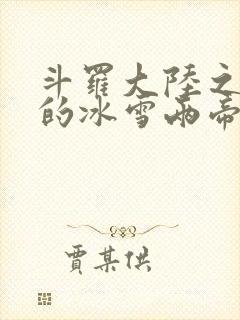 斗羅大陸之
的冰雪兩帝
賈某供